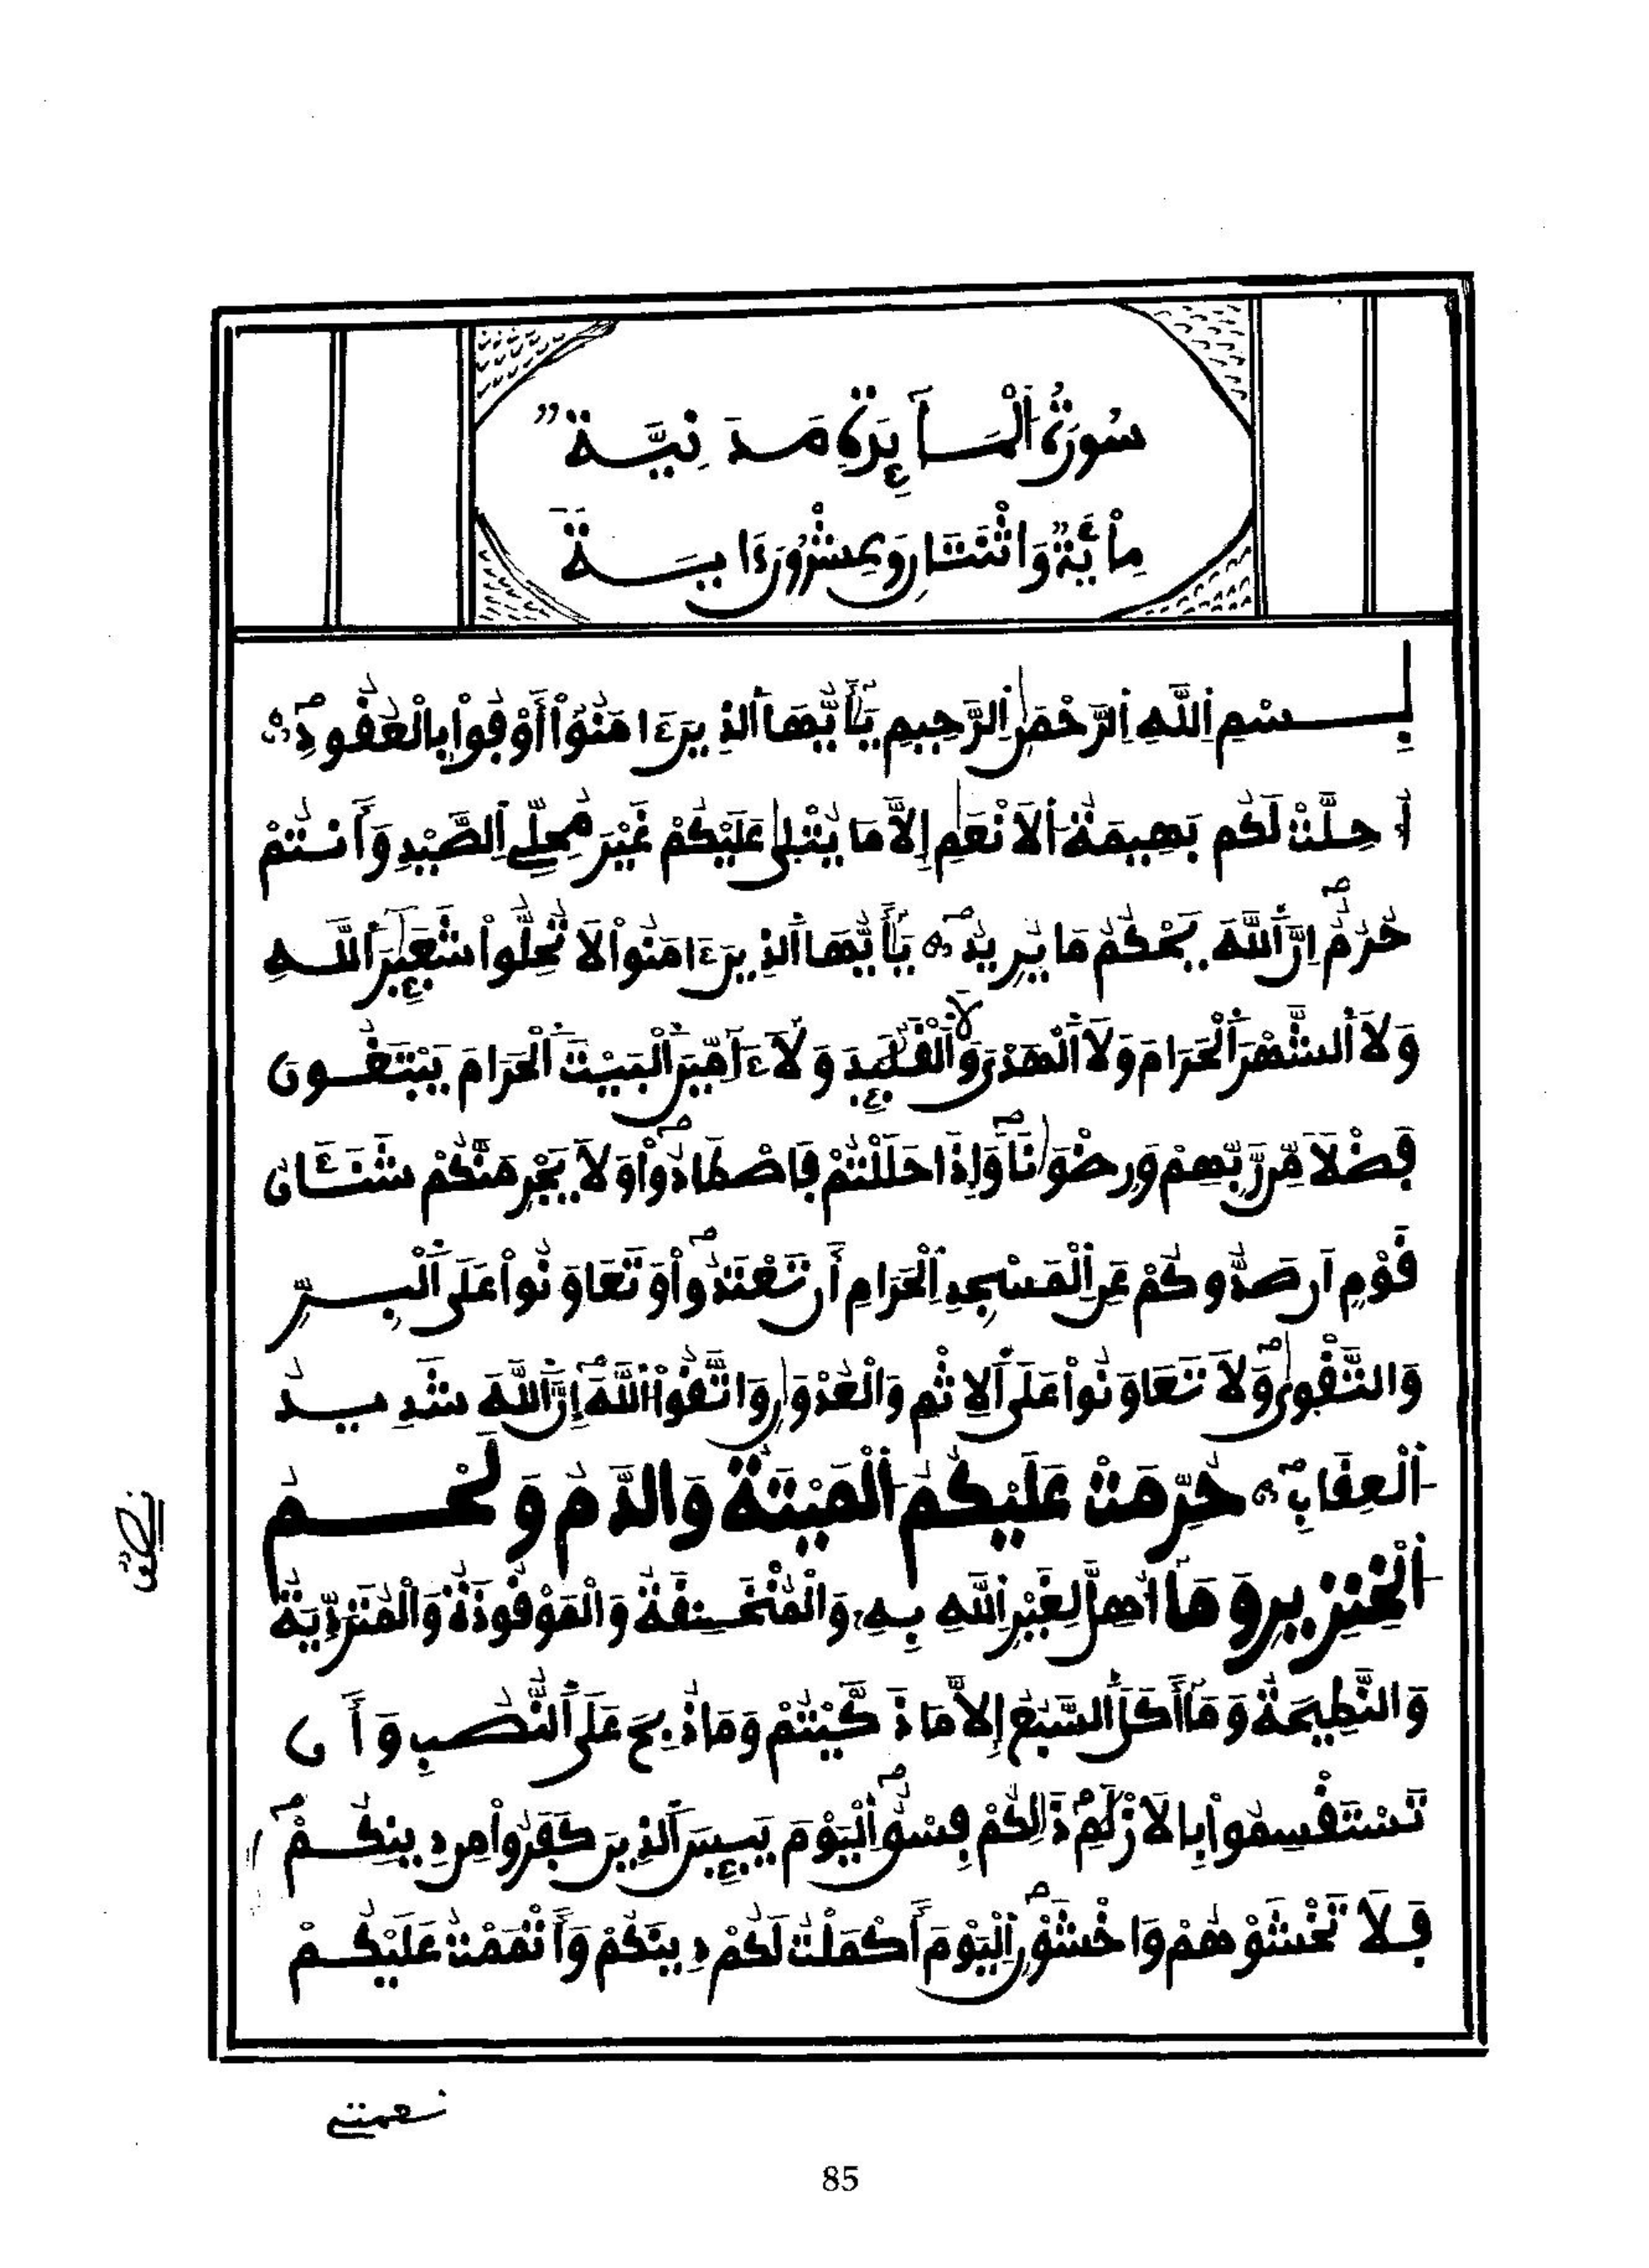 سُورَةُ اَ۬لْمَآئِدَةِ مَدَنِيَّةٌ
مِاْئَةٌ وَاثْنَتَانِ وَعِشْرُونَ ءَايَةً
بِسْمِ اِ۬للَّهِ اِ۬لرَّحْمَٰنِ اِ۬لرَّحِيمِ يَٰٓأَيُّهَا اَ۬لذِينَ ءَامَنُوٓاْ أَوْفُواْ بِالْعُقُودِۖ
أُحِلَّتْ لَكُم بَهِيمَةُ اُ۬لَانْعَٰمِ إِلَّا مَا يُتْلَىٰ عَلَيْكُمْ غَيْرَ مُحِلِّے اِ۬لصَّيْدِ وَأَنتُمْ
حُرُمٌۖ اِنَّ اَ۬للَّهَ يَحْكُمُ مَا يُرِيدُۖ يَٰٓأَيُّهَا اَ۬لذِينَ ءَامَنُواْ لَا تُحِلُّواْ شَعَٰٓئِرَ اَ۬للَّهِ
وَلَا اَ۬لشَّهْرَ اَ۬لْحَرَامَ وَلَا اَ۬لْهَدْىَ وَلَا اَ۬لْقَلَٰٓئِدَ وَلَآ ءَآمِّينَ اَ۬لْبَيْتَ اَ۬لْحَرَامَ يَبْتَغُونَ
فَضْلاً مِّن رَّبِّهِمْ وَرِضْوَٰناًۖ وَإِذَا حَلَلْتُمْ فَاصْطَادُواْۖ وَلَا يَجْرِمَنَّكُمْ شَنَـَٔانُ
قَوْمٍ اَن صَدُّوكُمْ عَنِ اِ۬لْمَسْجِدِ اِ۬لْحَرَامِ أَن تَعْتَدُواْۖ وَتَعَاوَنُواْ عَلَى اَ۬لْبِرِّ
وَالتَّقْوَىٰۖ وَلَا تَعَاوَنُواْ عَلَى اَ۬لِاثْمِ وَالْعُدْوَٰنِ وَاتَّقُواْ اُ۬للَّهَۖ إِنَّ اَ۬للَّهَ شَدِيدُ
اُ۬لْعِقَابِۖ حُرِّمَتْ عَلَيْكُمُ اُ۬لْمَيْتَةُ وَالدَّمُ وَلَحْمُ
اُ۬لْخِنزِيرِ وَمَآ أُهِلَّ لِغَيْرِ اِ۬للَّهِ بِهِۦ وَالْمُنْخَنِقَةُ وَالْمَوْقُوذَةُ وَالْمُتَرَدِّيَةُ
وَالنَّطِيحَةُ وَمَآ أَكَلَ اَ۬لسَّبُعُ إِلَّا مَا ذَكَّيْتُمْ وَمَا ذُبِحَ عَلَى اَ۬لنُّصُبِ وَأَن
تَسْتَقْسِمُواْ بِالَازْلَٰمِۖ ذَٰلِكُمْ فِسْقٌۖ اُ۬لْيَوْمَ يَئِسَ اَ۬لذِينَ كَفَرُواْ مِن دِينِكُمْۖ
فَلَا تَخْشَوْهُمْ وَاخْشَوْنِۖ اِ۬لْيَوْمَ أَكْمَلْتُ لَكُمْ دِينَكُمْ وَأَتْمَمْتُ عَلَيْكُمْ
نعمتے
85